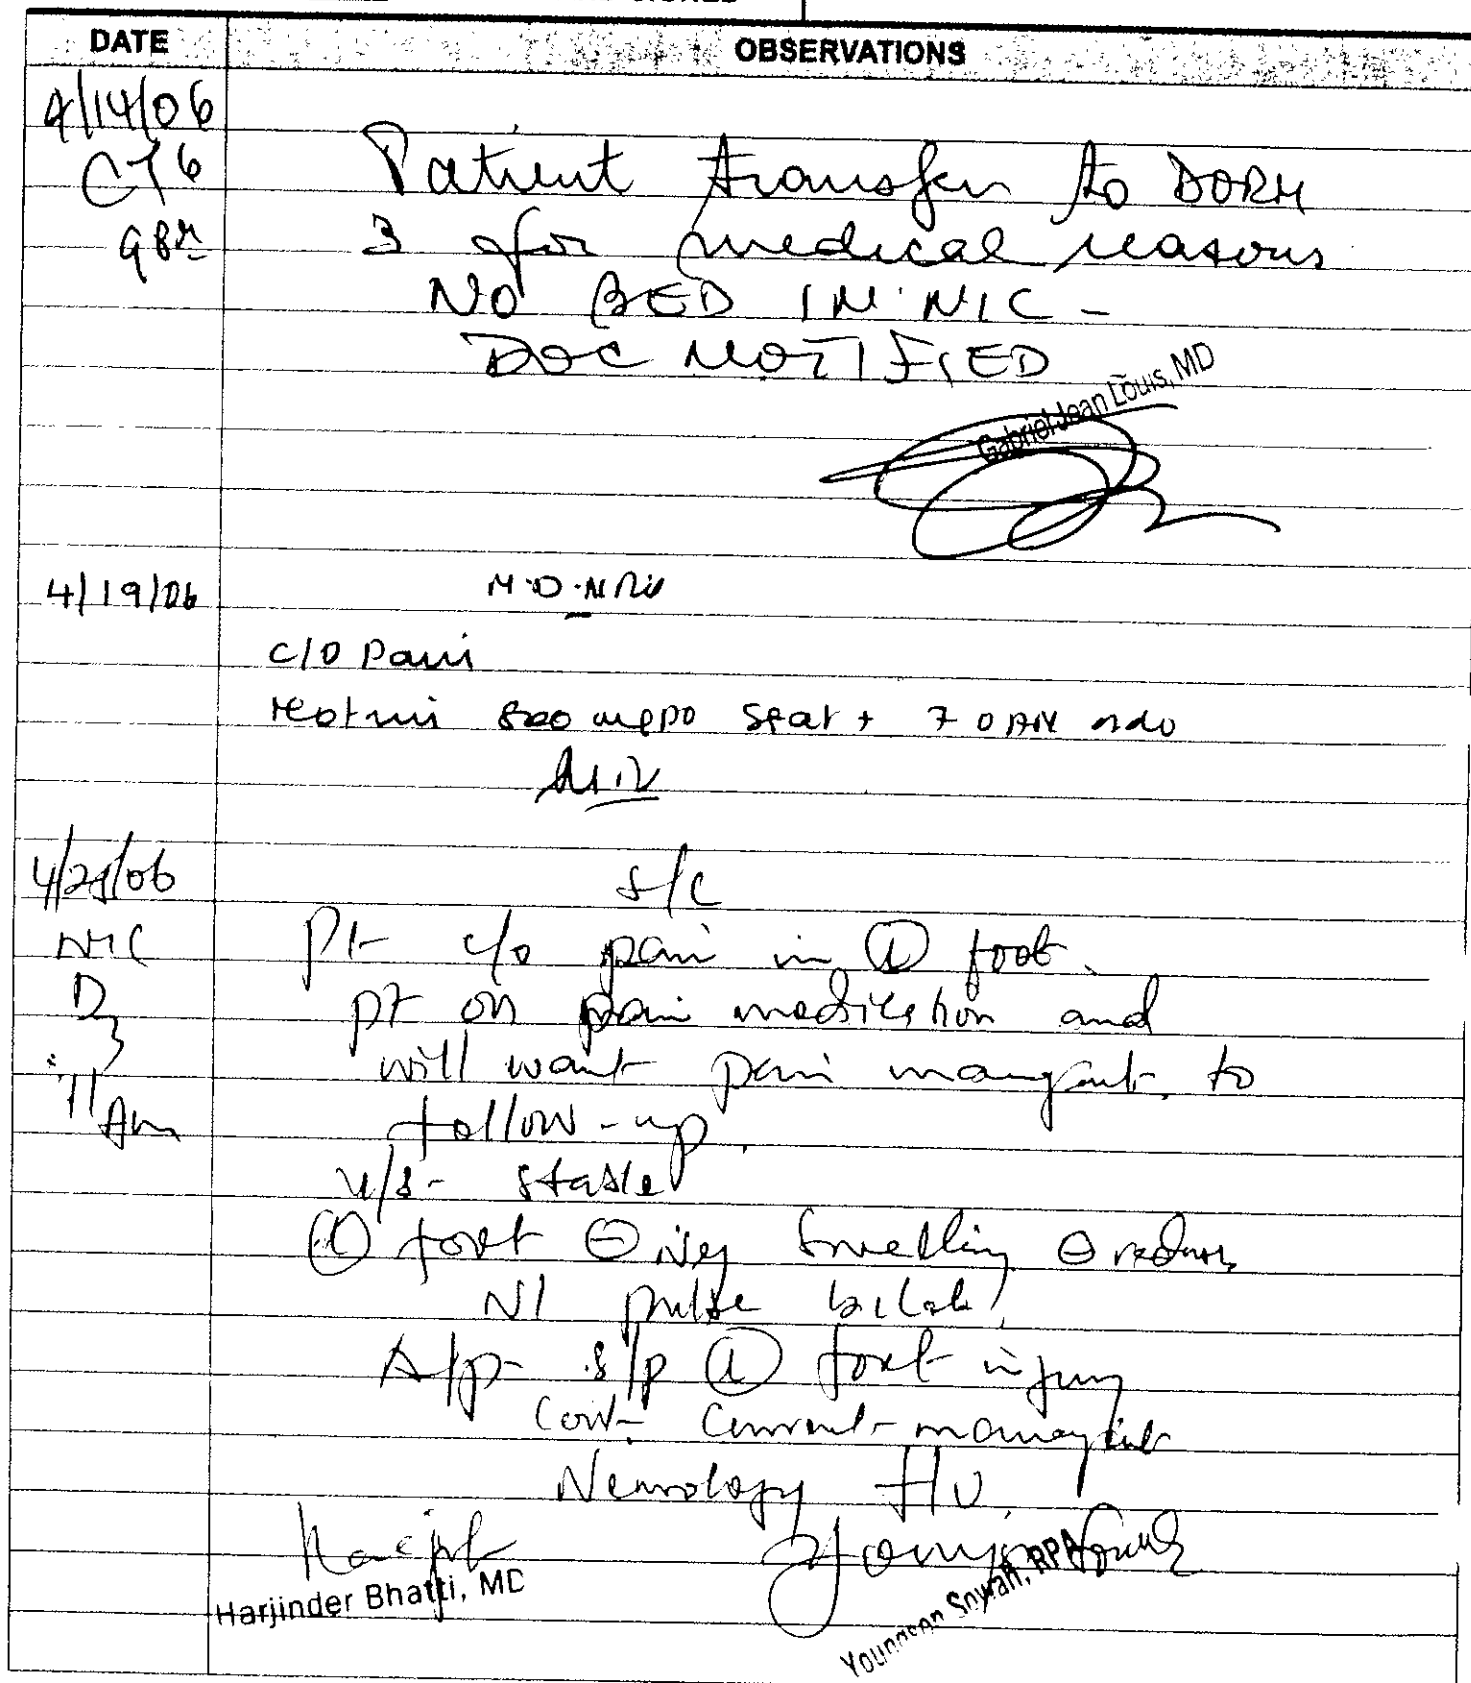 DATE OBSERVATIONS
4/14/06
C76 Patient transfer to DORM
3 for medical reasons
NO BED IN NIC -
DOC NOTIFIED
Gabriel Jean Louis, MD
4/19/06
c/o Pain
Motrin
4/21/06 S/C
NIC Pt c/o pain in (L) foot.
D3 pt on pain medication and
11 Am will want pain managmt. to
follow-up.
v/s - stable
(L) foot ⊖ swelling ⊖ redness
Nl pulse bilat
A/p - s/p (L) foot injury
Cont. Current management
Neurology f/u.
Harjinder Bhatti, MD
RPA